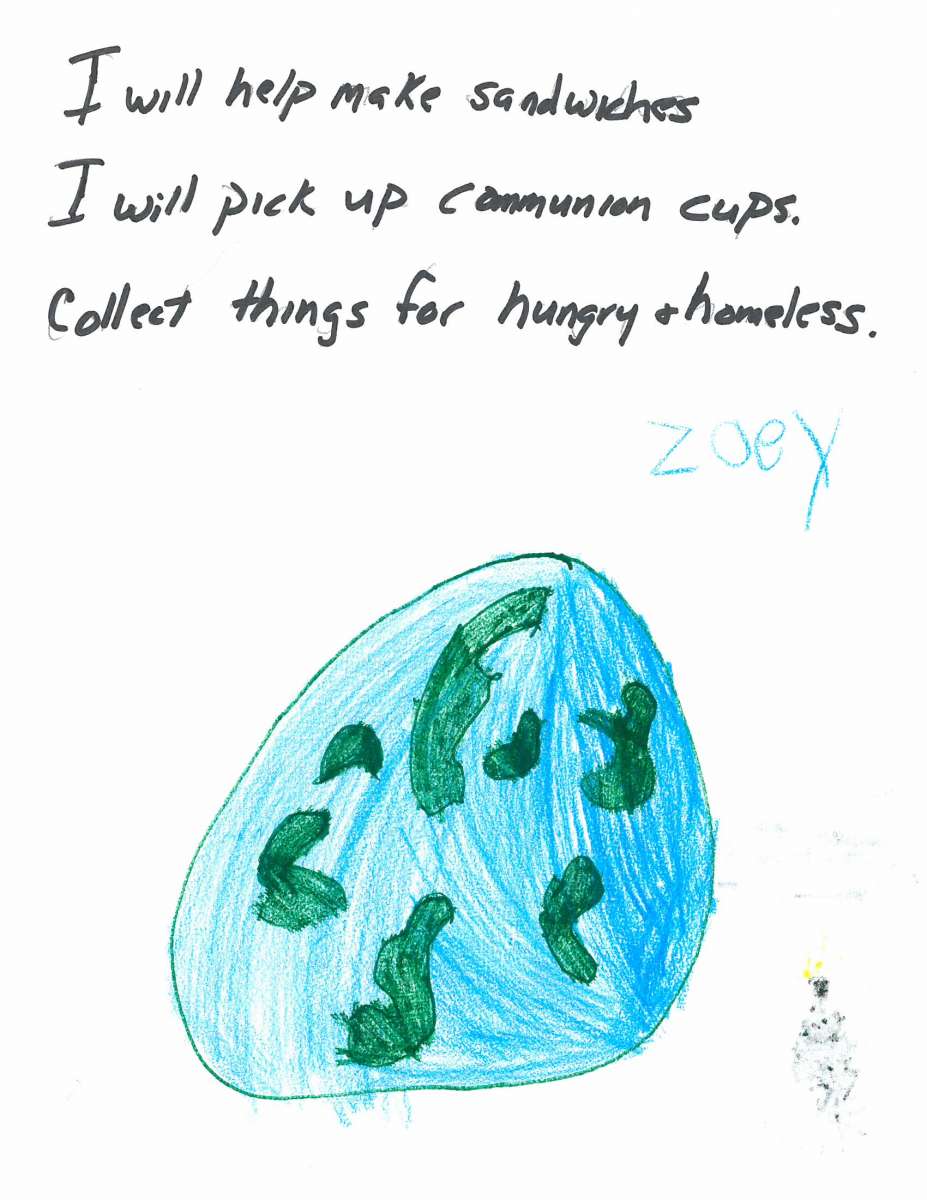 I will help make sandwiches
I will pick up communion cups.
Collect things for hungry & homeless.
zoey